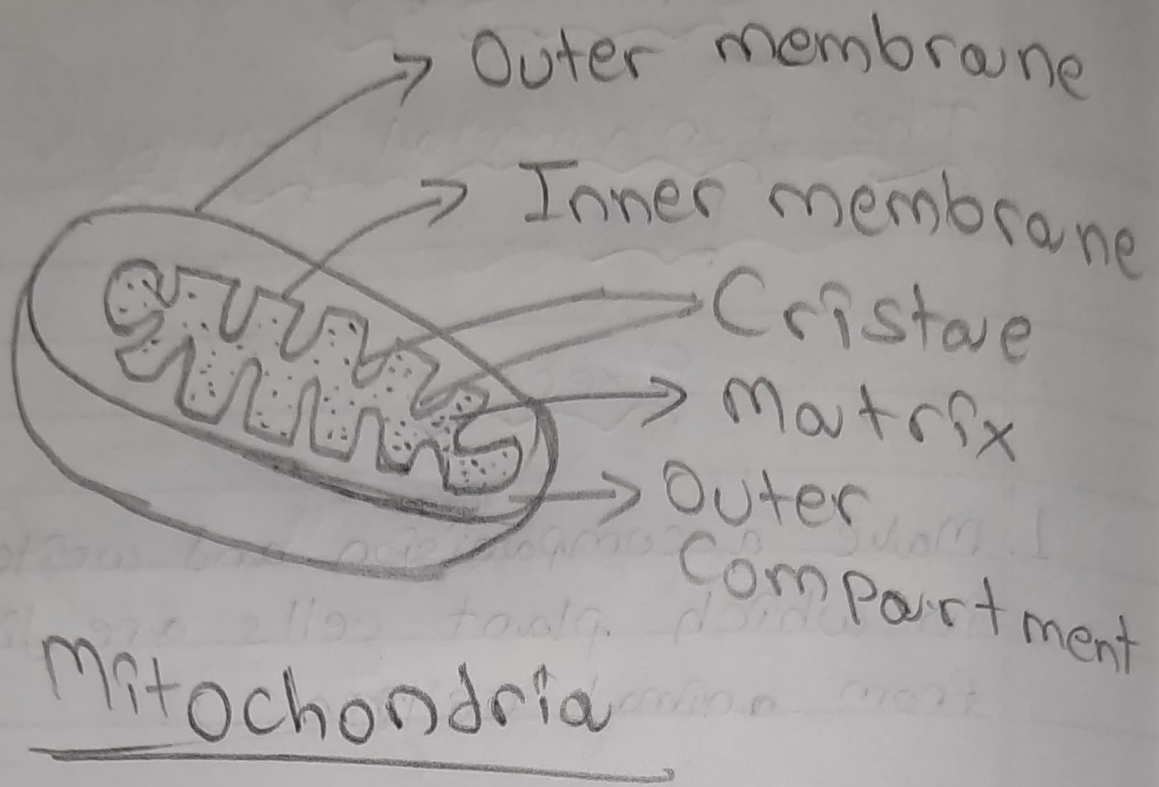 Outer membrane
Inner membrane
Cristae
Matrix
Outer
Compartment
Mitochondria